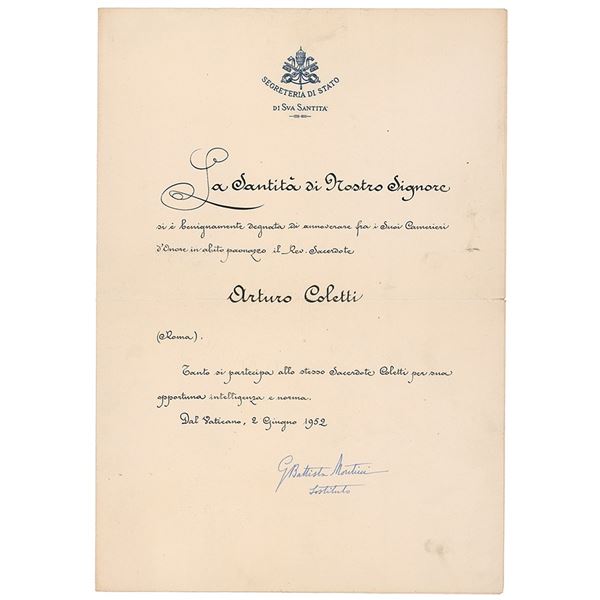 SEGRETERIA DI STATO
DI SVA SANTITÀ
La Santità di Nostro Signore
si è benignamente degnata di annoverare fra i Suoi Camerieri
d'Onore in abito paonazzo il Rev. Sacerdote
Arturo Coletti
(Roma).
Tanto si partecipa allo stesso Sacerdote Coletti per sua
opportuna intelligenza e norma.
Dal Vaticano, 2 Giugno 1952
GBattista Montini
Sostituto